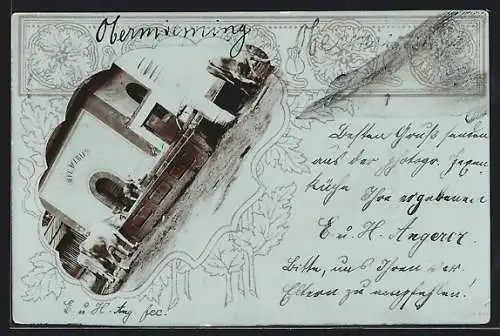 Obermieming
Besten Gruß senden
aus der photogr. Hexen
küche Ihre ergebenen
E. u. H. Angerer
Bitte, uns Ihren
Eltern zu empfehlen!
E. u. H. Ang fec.